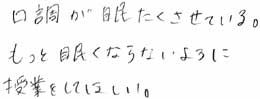 口調が眠たくさせている。
もっと眠くならないように
授業をしてほしい。